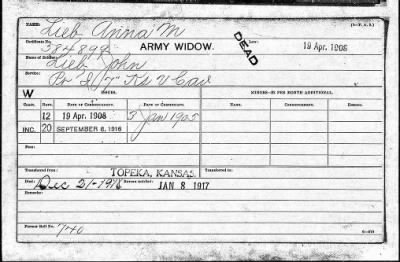 NAME: Lieb, Anna M
Certificate No. 584899 ARMY WIDOW. DEAD Date: 19 Apr. 1908
Name of Soldier: Lieb John
Service: Pv "I" 7" Ks V Cav
W ISSUES. MINORS—$2 PER MONTH ADDITIONAL.
CLASS. RATE. DATE OF COMMENCEMENT. DATE OF CERTIFICATE. NAMES. DATE OF COMMENCEMENT.
12 19 Apr. 1908 3 Jan 1905
INC. 20 SEPTEMBER 8, 1916
Transferred from TOPEKA, KANSAS. Transferred to:
Died: Dec 21-1916 Bureau notified: JAN 8 1917
Remarks:
Former Roll No. 740